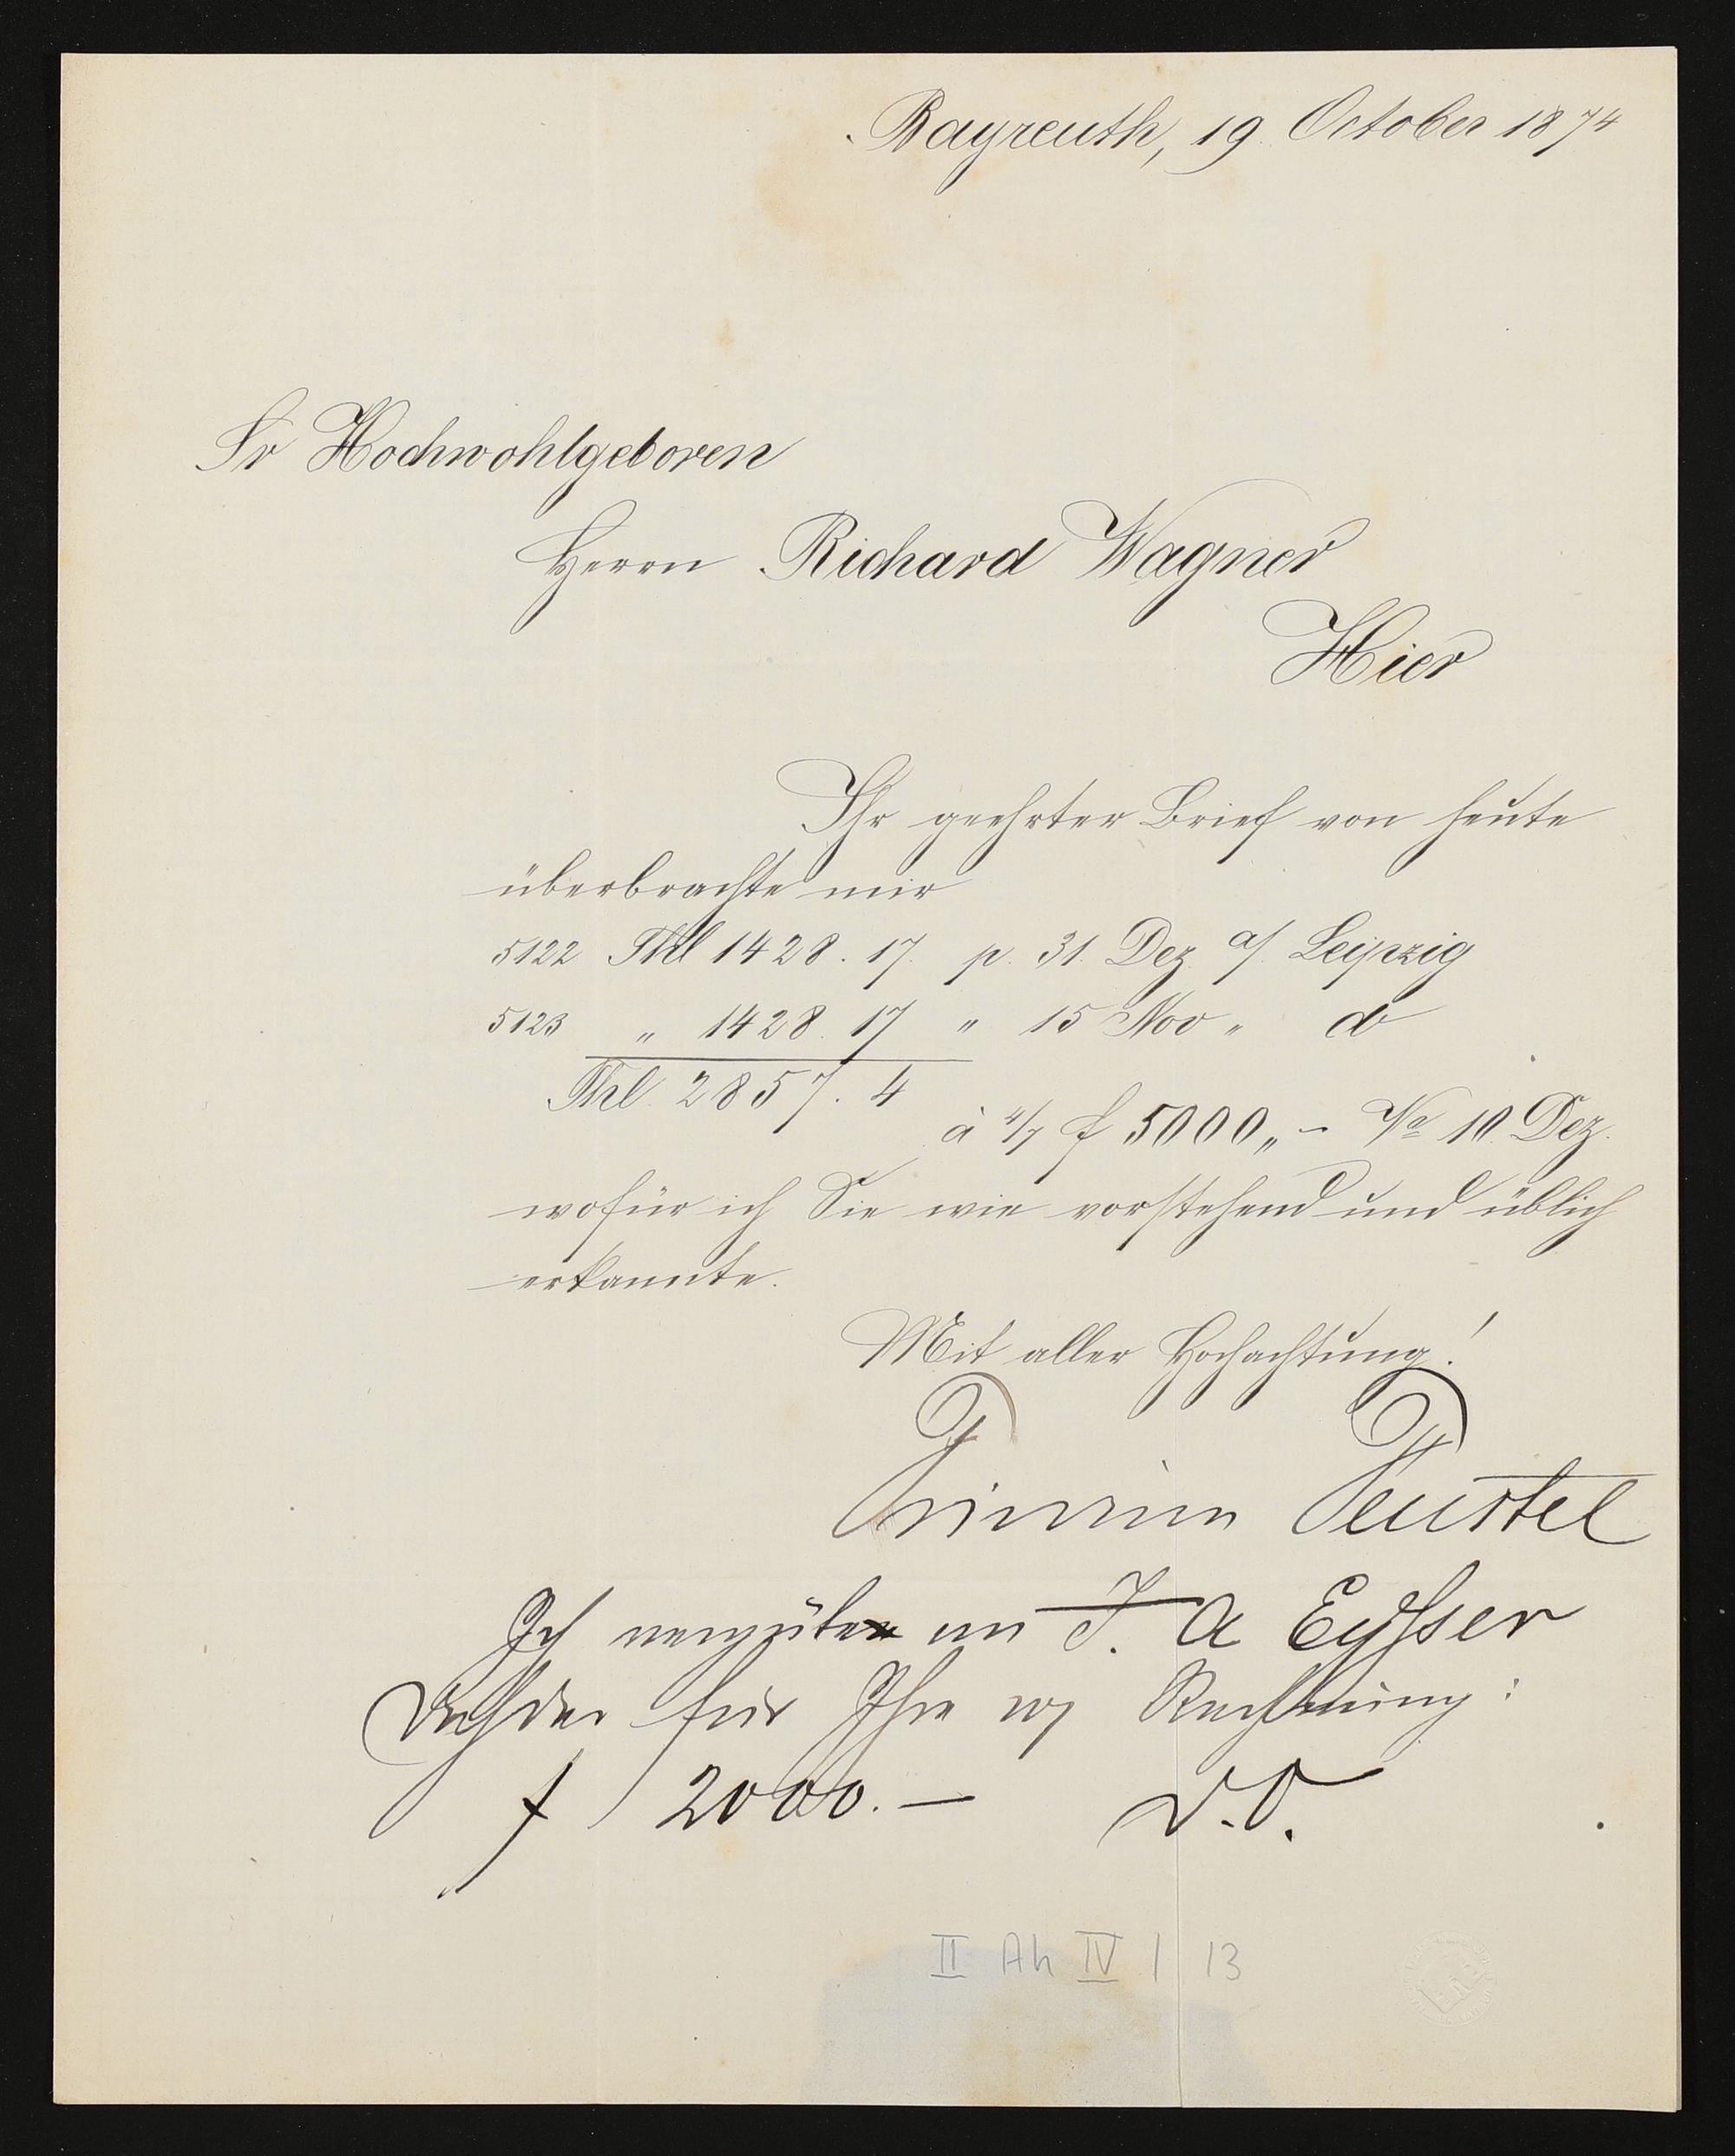 Bayreuth, 19. October 1874
Sr Hochwohlgeboren
Herrn Richard Wagner
Hier
Ihr geehrter Brief von heute
überbrachte mir
5122 Thl 1428. 17. p. 31. Dez. a/ Leipzig
5123 „ 1428. 17 „ 15 Nov „ do
Thl. 2857. 4
à 4/7 f 5000„ – Va 10. Dez.
wofür ich Sie wie vorstehend und üblich
erkannte.
Mit aller Hochachtung!
Feustel
Ich vergüte an J. A Eyßer
für Ihre Rechnung:
f 2000. — D.O.
II Ah IV 1 13